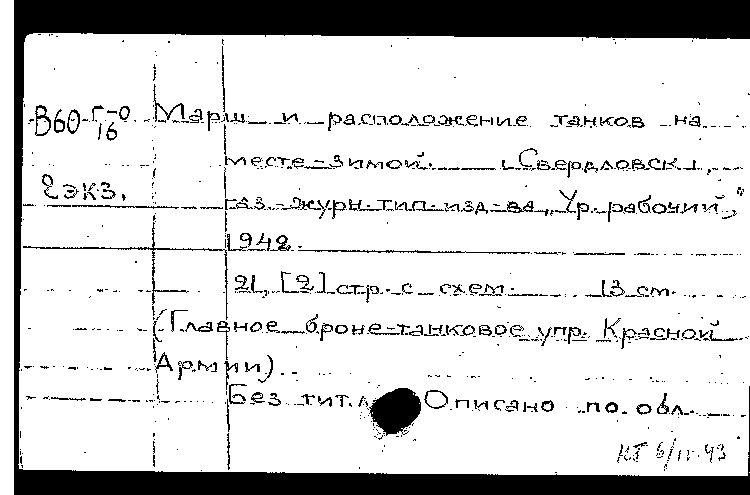 В60 Г-0/16 Марш и расположение танков на
месте зимой. [Свердловск],
2 экз. газ.-журн. тип. изд-ва „Ур. рабочий”,
1942.
21, [2] стр. с схем. 13 см.
(Главное броне-танковое упр. Красной
Армии).
Без тит. л. Описано по обл.
КГ 6/IV 43